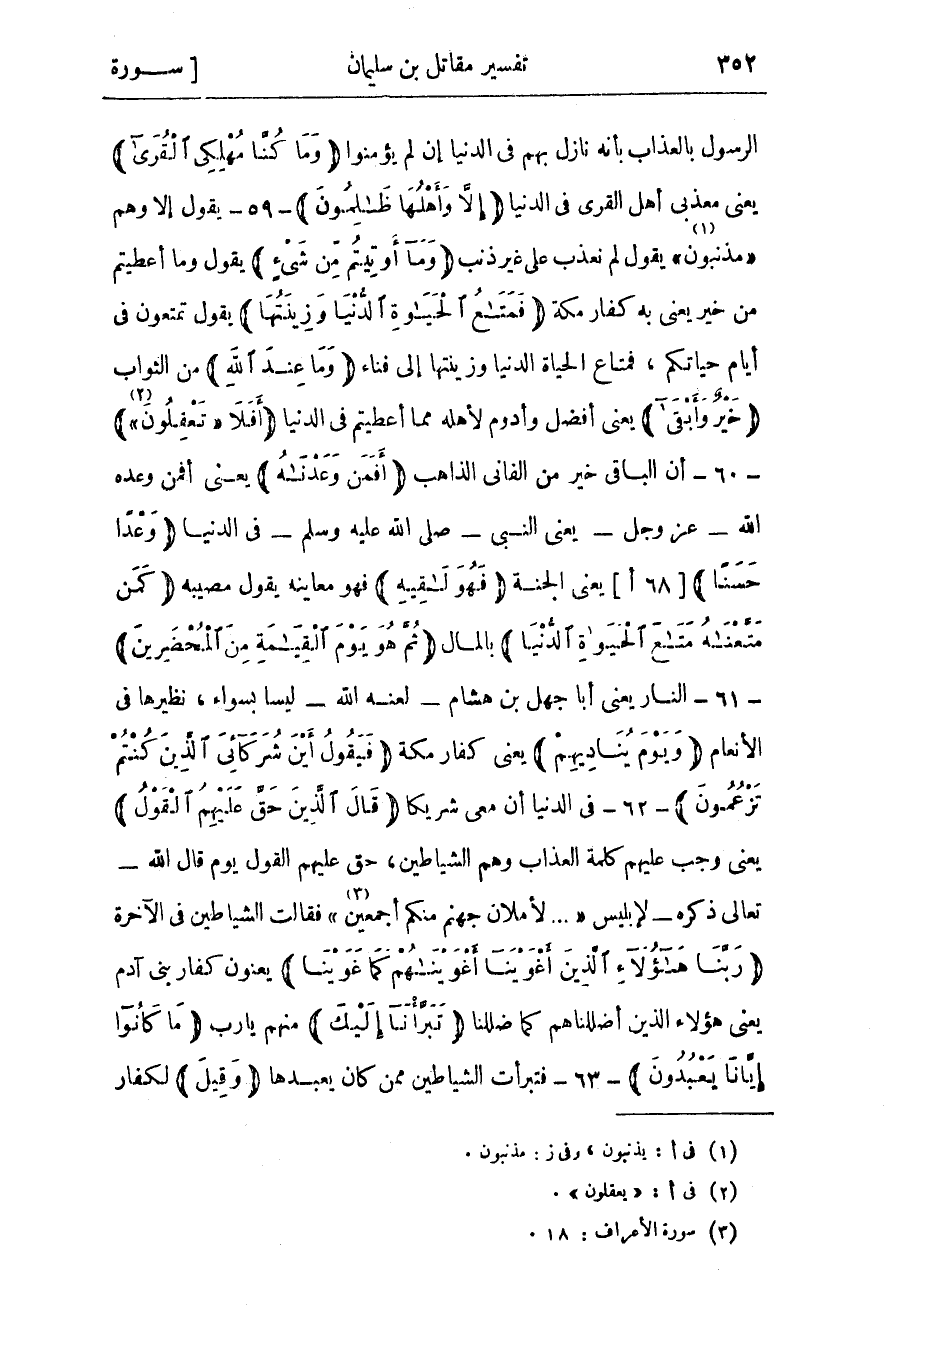 ٣٥٢ تفسير مقاتل بن سليمان [ سـورة
الرسول بالعذاب بأنه نازل بهم فى الدنيا إن لم يؤمنوا ﴿ وَمَا كُنَّا مُهْلِكِى ٱلْقُرَىٰٓ ﴾
يعنى معذبى أهل القرى فى الدنيا ﴿ إِلَّا وَأَهْلُهَا ظَـٰلِمُونَ ﴾ - ٥٩ - يقول إلا وهم
«مذنبون»(١) يقول لم نعذب على غير ذنب ﴿ وَمَآ أُوتِيتُم مِّن شَىْءٍ ﴾ يقول وما أعطيتم
من خير يعنى به كفار مكة ﴿ فَمَتَـٰعُ ٱلْحَيَـٰوةِ ٱلدُّنْيَا وَزِينَتُهَا ﴾ يقول تمتعون فى
أيام حياتكم ، فمتاع الحياة الدنيا وزينتها إلى فناء ﴿ وَمَا عِنـدَ ٱللَّهِ ﴾ من الثواب
﴿ خَيْرٌ وَأَبْقَىٰٓ ﴾ يعنى أفضل وأدوم لأهله مما أعطيتم فى الدنيا ﴿ أَفَلَا « تَعْقِلُونَ»(٢) ﴾
- ٦٠ - أن البـاقى خير من الفانى الذاهب ﴿ أَفَمَن وَعَدْنَـٰهُ ﴾ يعـنى أفمن وعده
الله - عز وجل - يعنى النـبى - صلى الله عليه وسلم - فى الدنيـا ﴿ وَعْدًا
حَسَنًا ﴾ [ ٦٨ أ ] يعنى الجنـة ﴿ فَهُوَ لَـٰقِيهِ ﴾ فهو معاينه يقول مصيبه ﴿ كَمَن
مَّتَّعْنَـٰهُ مَتَـٰعَ ٱلْحَيَـوٰةِ ٱلدُّنْيَـا ﴾ بالمـال ﴿ ثُمَّ هُوَ يَوْمَ ٱلْقِيَـٰمَةِ مِنَ ٱلْمُحْضَرِينَ ﴾
- ٦١ - النـار يعنى أبا جهل بن هشام - لعنـه الله - ليسا بسواء ، نظيرها فى
الأنعام ﴿ وَيَوْمَ يُنَـادِيهِمْ ﴾ يعنى كفار مكة ﴿ فَيَقُولُ أَيْنَ شُرَكَآئِىَ ٱلَّذِينَ كُنتُمْ
تَزْعُمُونَ ﴾ - ٦٢ - فى الدنيا أن معى شريكا ﴿ قَالَ ٱلَّذِينَ حَقَّ عَلَيْهِمُ ٱلْقَوْلُ ﴾
يعنى وجب عليهم كلمة العذاب وهم الشياطين، حق عليهم القول يوم قال الله -
تعالى ذكره - لإبليس « ... لأملان جهنم منكم أجمعين(٣) » فقالت الشياطين فى الآخرة
﴿ رَبَّنَـا هَـٰٓؤُلَآءِ ٱلَّذِينَ أَغْوَيْنَـآ أَغْوَيْنَـٰهُمْ كَمَا غَوَيْنَـا ﴾ يعنون كفار بنى آدم
يعنى هؤلاء الذين أضللناهم كما ضللنا ﴿ تَبَرَّأْنَـآ إِلَيْكَ ﴾ منهم يارب ﴿ مَا كَانُوٓا
إِيَّانَا يَعْبُدُونَ ﴾ - ٦٣ - فتبرأت الشياطين ممن كان يعبـدها ﴿ وَقِيلَ ﴾ لكفار
(١) فى أ : يذنبون ، وفى ز : مذنبون .
(٢) فى أ : « يعقلون » .
(٣) سورة الأعراف : ١٨ .